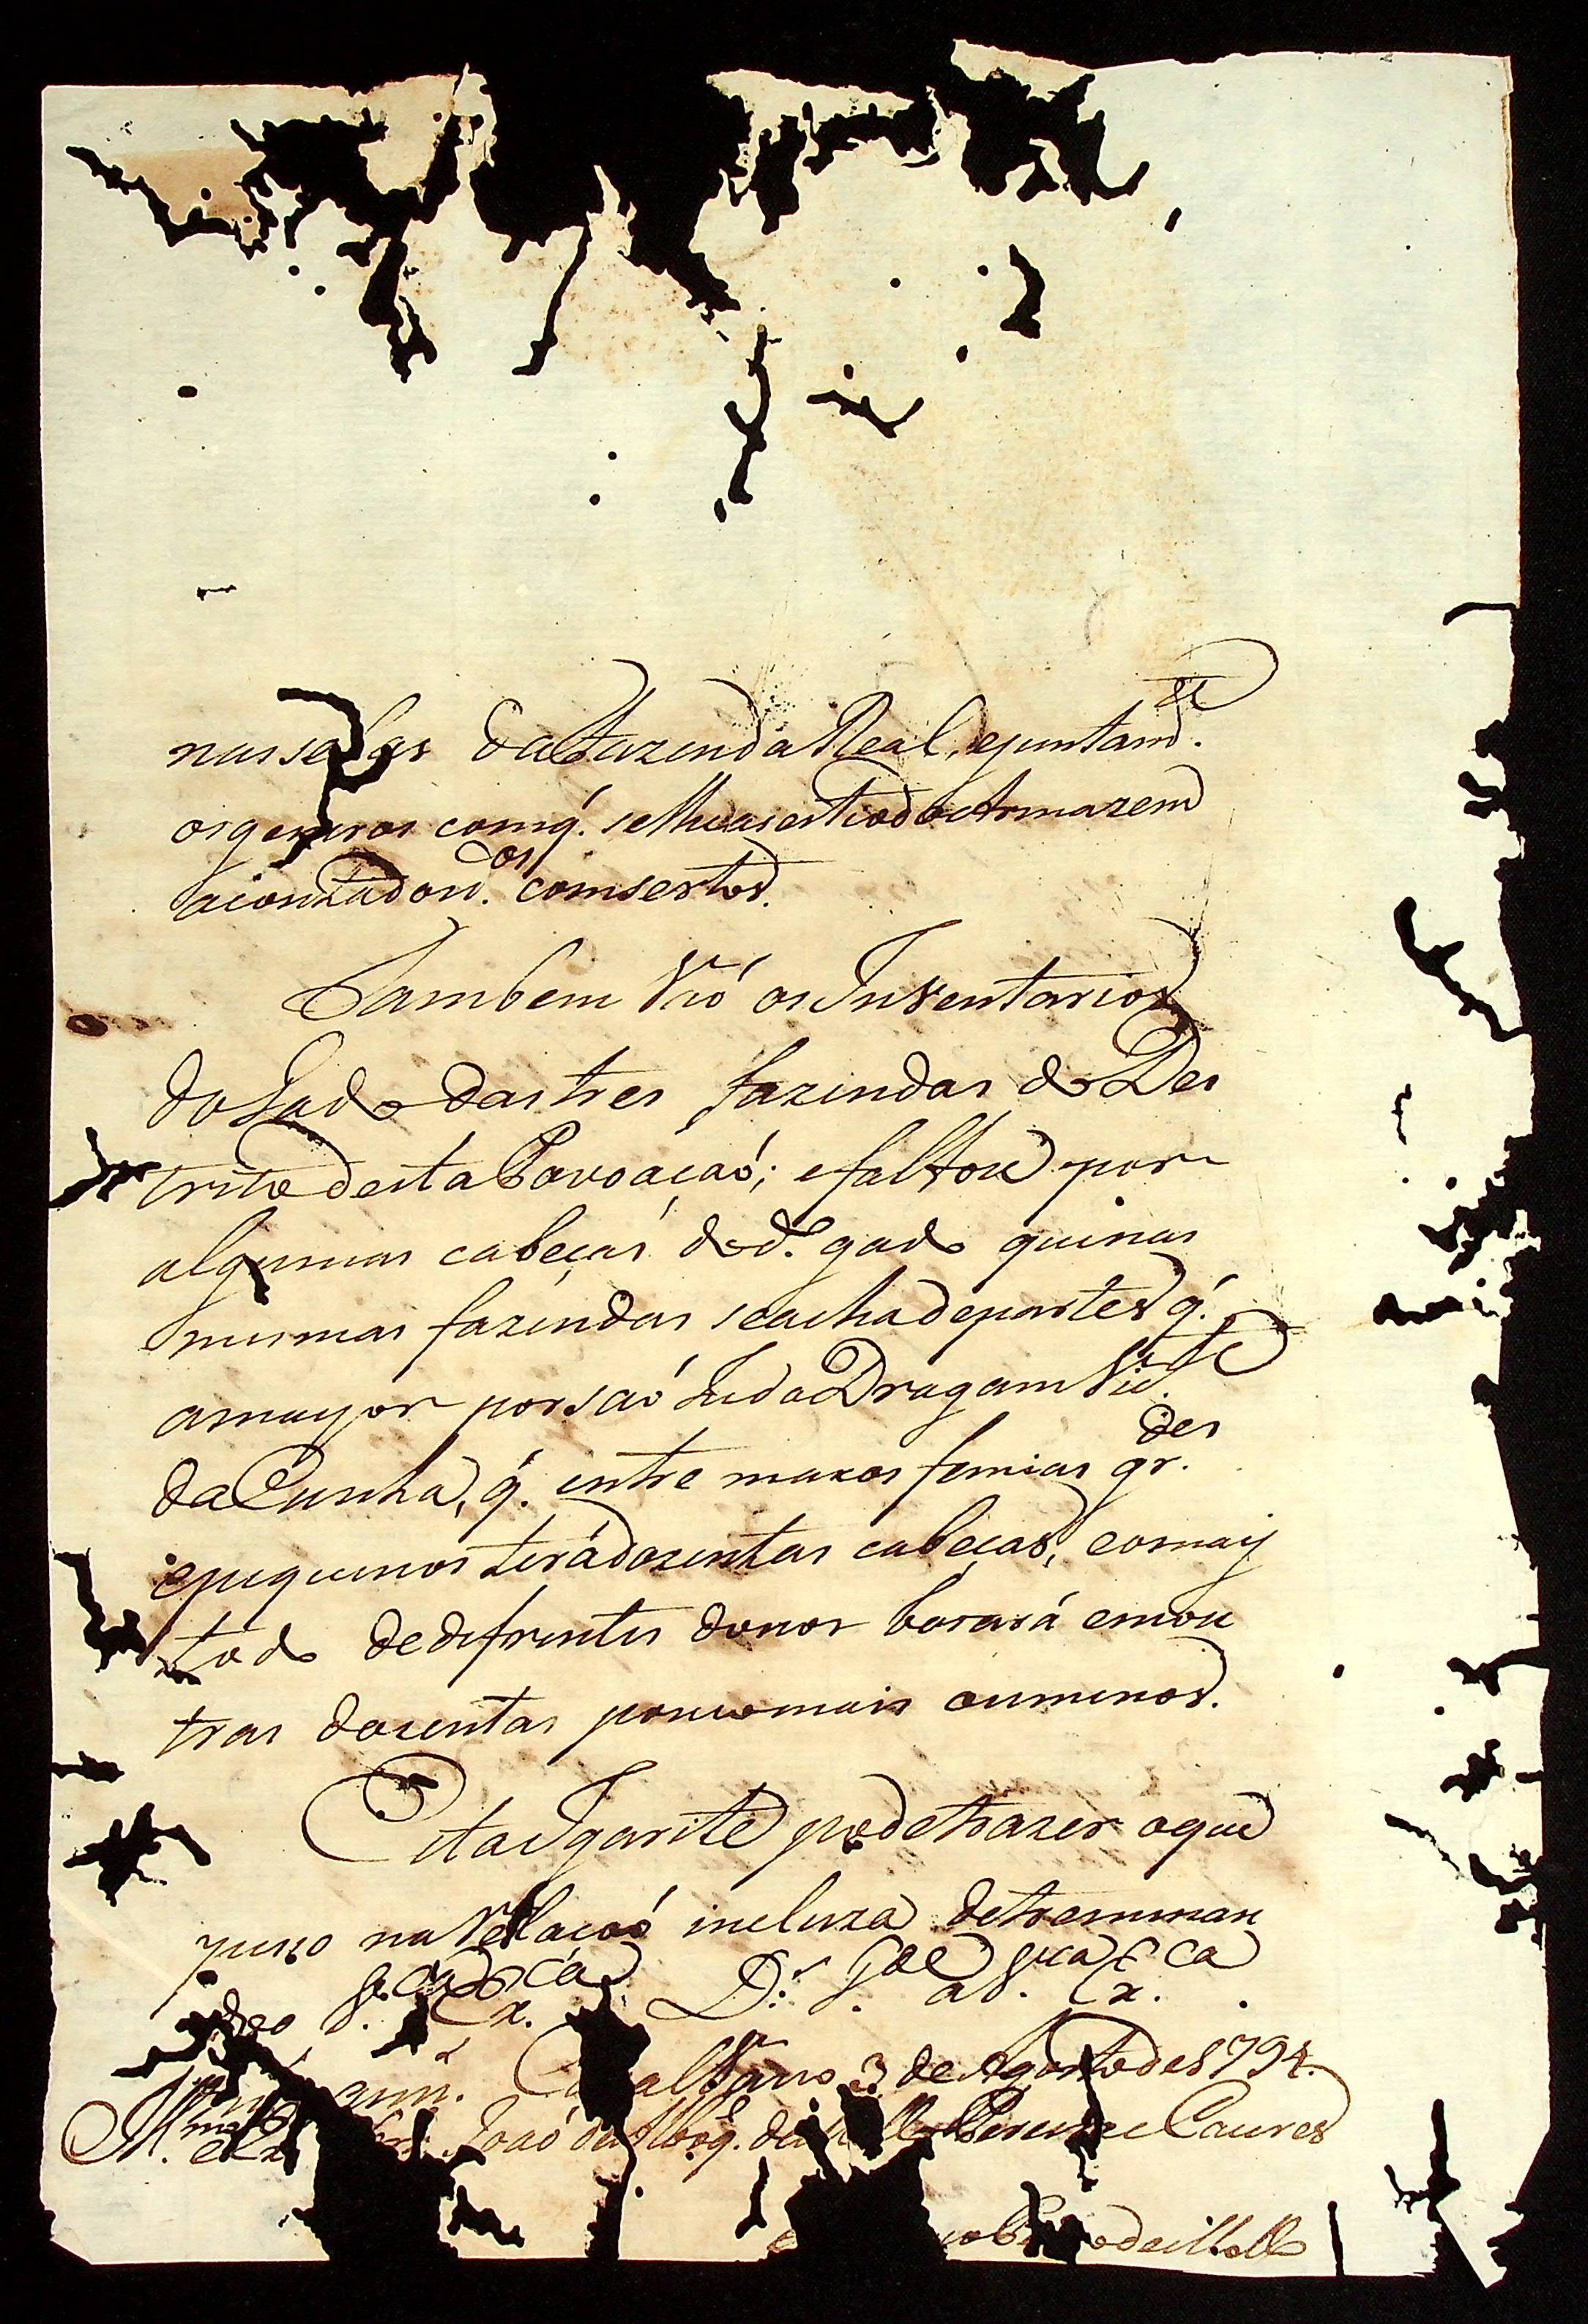 nas da Fazenda Real, ejuntam.te
osgeneros comq. selhe Armazem
os comsertos.
Tambem Vaó os Inventarios
doGado dastres fazendas do Des
trito destaPovoaçaó; efaltou por
algumas cabeças dod.o gado quinas
mesmas fazendas seacha departes q.
amayor porsaó hedoDragam Vic.te
daCunha, q. entre maxos femias gr.des
epequenos teradozentas cabeças, eomay
todo dedefrentes donos borará emou
tras dozentas poucomais oumenos.
EstaIgarite podetrazer oque
pesso naRellaçaó incluza detreminan
do V. Ex.ca D.s G.de a V. Ex.ca
3 de Agosto de1794.
Joaó Pereira e Caldes